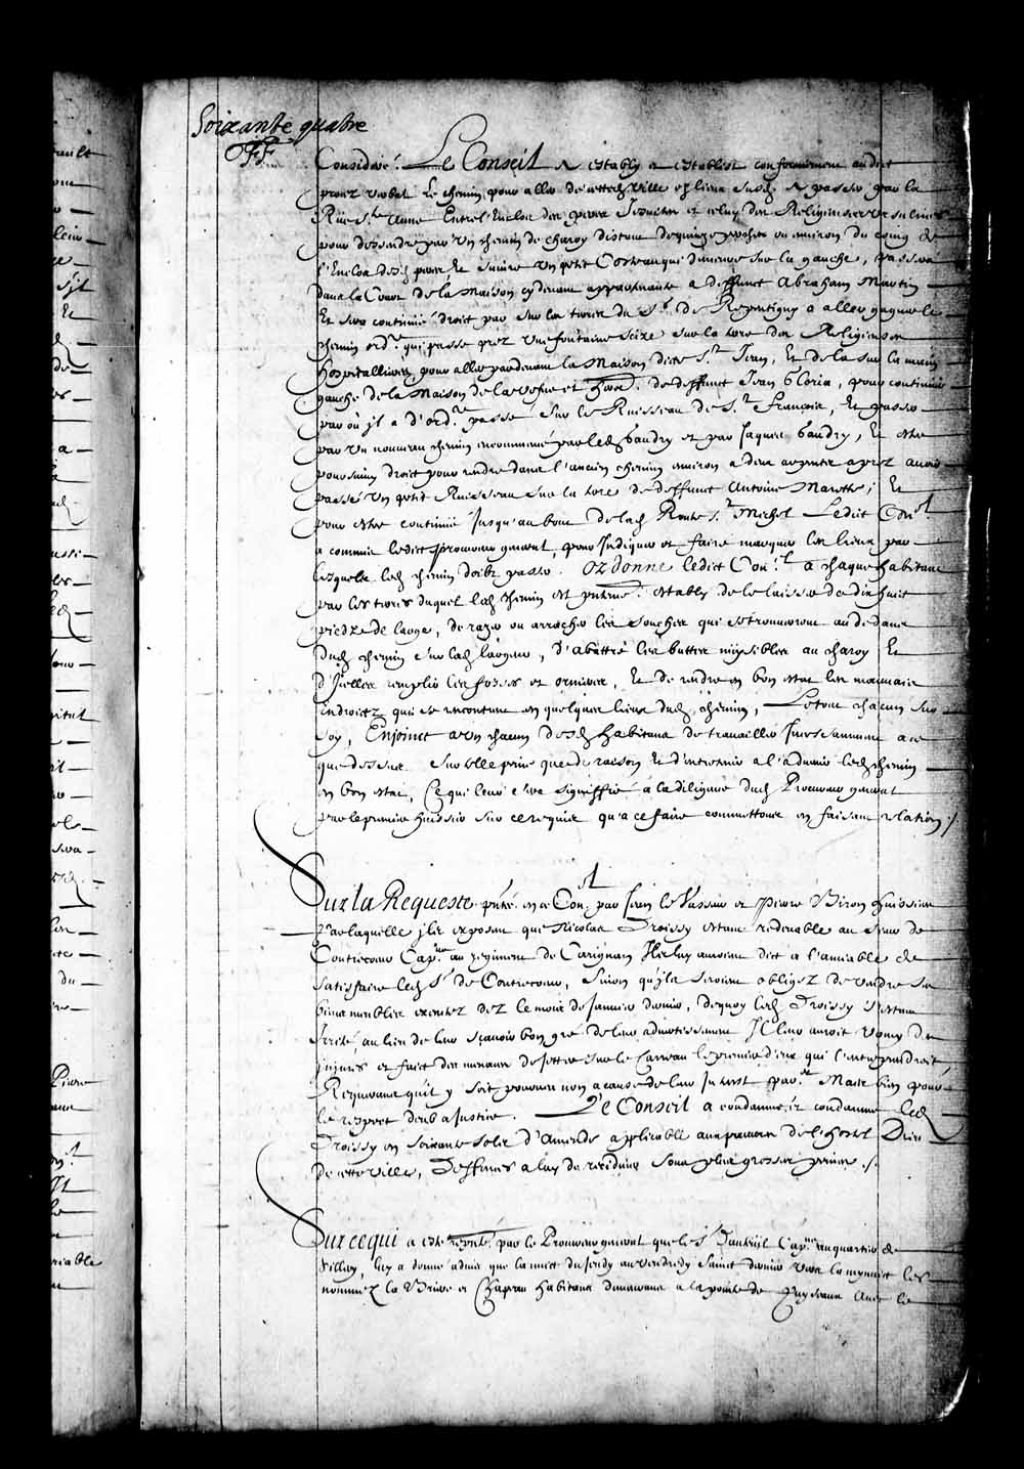 Soixante quatre
Consideré. Le Conseil a estably et establist conformement audit
procez verbal le chemin pour aller de cette ville es lieux susd. a passer par la
Rüe Ste Anne Entre l'Enclos des peres Jesuites et celuy des Religieuses Ursulines
pour dessendre par un chemin de charoy distant de quinze perches ou environ du coing de
l'Enclos desd. peres, Et suivre un petit Costeau qui demeure sur la gauche, passer
dans la Cour de la Maison cydevant appartenante a deffunct Abraham Martin
Et sera continué droit par sur les terres du Sr. de Repentigny a aller gagner le
chemin ordre. qui passe prez une fontaine scize sur la terre des Religieuses
hospitallieres pour aller pardevant la Maison dicte St. Jean, Et de la sur la main
gauche de la Maison de la vefve et hers. de deffunct Jean Gloria, pour continuer
par où jl a d'ordre. passé sur le Ruisseau de St. François, Et passer
par un nouveau chemin encommencé par led. Gaudry et par Jaques Gaudry, Et estre
poursuivy droit pour rendre dans l'ancien chemin environ a deux arpents aprez avoir
passé un petit Ruisseau sur la terre de deffunct Antoine Martin; Et
pour estre continué jusqu'au bout de lad. Route St. Michel Ledict Conel.
a commis ledict procureur general, pour jndiquer et faire marquer les lieux par
lesquels led. chemin doibt passer. Ordonne ledict Conel. a chaque habitant
par les terres duquel led. chemin est presentemt. estably de le laisser de dix huict
piedz de large, de razer ou arracher les souches qui se trouveront au dedans
dud. chemin sur lad. largeur, d'abattre les buttes nuysibles au charoy Et
d'jcelles remplir les fosses et ornieres, Et de rendre en bon estat les mauvais
endroictz qui se rencontrent en quelques lieux dud. chemin, Le tout chacun sur
soy, Enjoinct a un chacun desd. habitans de travailler jncessamment a ce
que dessus sur telle peine que de raison Et d'entretenir a l'advenir led. chemin
en bon estat, Ce qui leur sera signiffié a la diligence dud. Procureur general
par le premier huissier sur ce requis qu'a ce faire commettons en faisant relation /.
Sur la Requeste pnté. en ce Conel. par Jean le Vasseur et Pierre Biron huissiers
Par laquelle jls exposent que Nicolas Droissy estant redevable au sieur de
Contrecoeur Capne. au regiment de Carignan Ils luy auroient dict a l'amiable de
satisfaire led. Sr de Contrecoeur, sinon qu'jls seroient obligez de vendre ses
biens meubles executez dez le mois de Janvier dernier, dequoy led. Droissy s'estant
jrrité, au lieu de leur sçavoir bon gré de leur advertissement Il leur auroit vomy des
jnjures et faict des menaces de jetter sur le Carreau le premier d'eux qui l'entreprendroit
Requerant qu'il y soit pourveu non a cause de leur jnterest parer. Mais bien pour
le respect deub a Justice. Le Conseil a condamné et condamne led.
Droissy en soixante solz d'Amende applicable aux pauvres de l'hostel Dieu
de cette ville, Deffences a luy de recidiver sous plus grosses peines /.
Sur ce qui a esté repnté. par le Procureur general que le Sr. Dauteüil Capne. au quartier de
Sillery, luy a donné advis que la nuict du jeudy au vendredy Sainct dernier vers la mynuict les
nommez la Brierre et Chapeau habitans demeurans a la pointe de Puyseaux avec le